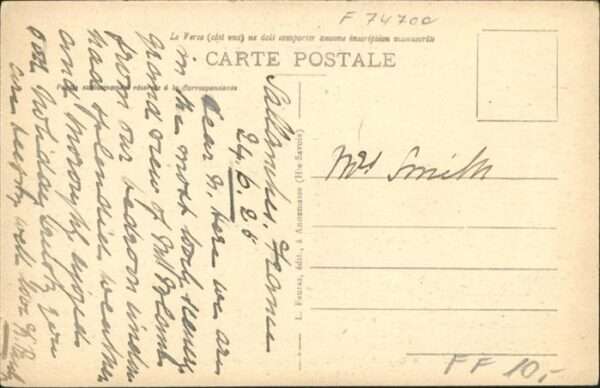 F 74700
Le Verso (côté vue) ne doit comporter aucune inscription manuscrite
CARTE POSTALE
Partie exclusivement réservée à la Correspondance
Sallanches, France
24.6.25
Dear N. here we are
in the most lovely scenery
grand view of Mt Blanc
from our bedroom window
had splendid weather
and thoroughly enjoyed
our holiday
are keeping well love
Mrs Smith
L. Feuraz, édit., à Annemasse (Hte Savoie)
FF 10,-